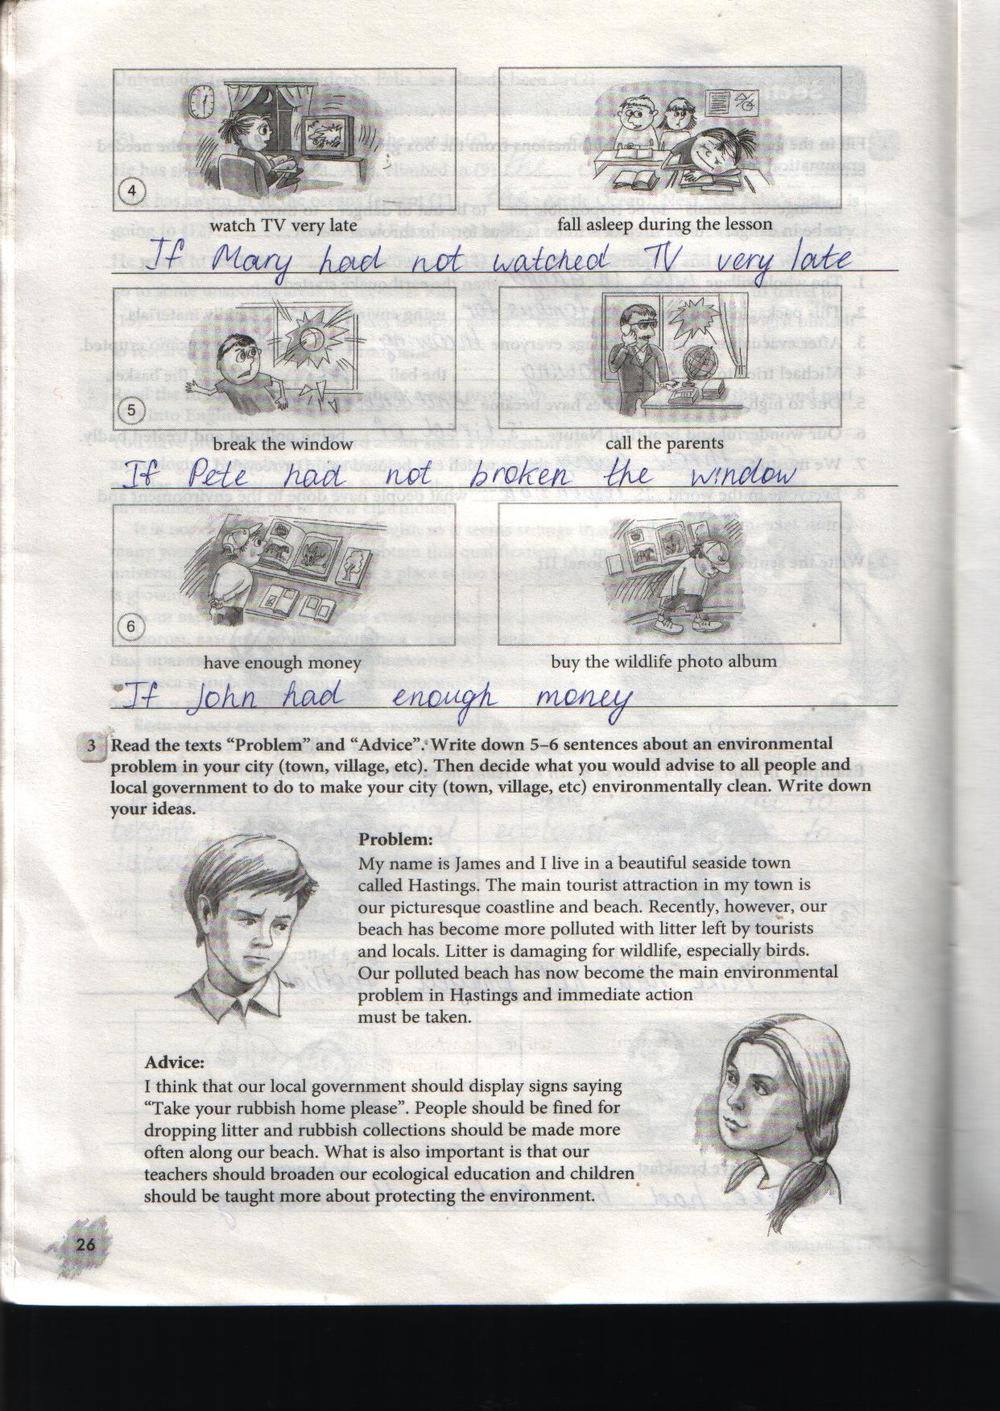 4
watch TV very late
fall asleep during the lesson
If Mary had not watched TV very late
5
break the window
call the parents
If Pete had not broken the window
6
have enough money
buy the wildlife photo album
If John had enough money
3 Read the texts “Problem” and “Advice”. Write down 5–6 sentences about an environmental
problem in your city (town, village, etc). Then decide what you would advise to all people and
local government to do to make your city (town, village, etc) environmentally clean. Write down
your ideas.
Problem:
My name is James and I live in a beautiful seaside town
called Hastings. The main tourist attraction in my town is
our picturesque coastline and beach. Recently, however, our
beach has become more polluted with litter left by tourists
and locals. Litter is damaging for wildlife, especially birds.
Our polluted beach has now become the main environmental
problem in Hastings and immediate action
must be taken.
Advice:
I think that our local government should display signs saying
“Take your rubbish home please”. People should be fined for
dropping litter and rubbish collections should be made more
often along our beach. What is also important is that our
teachers should broaden our ecological education and children
should be taught more about protecting the environment.
26